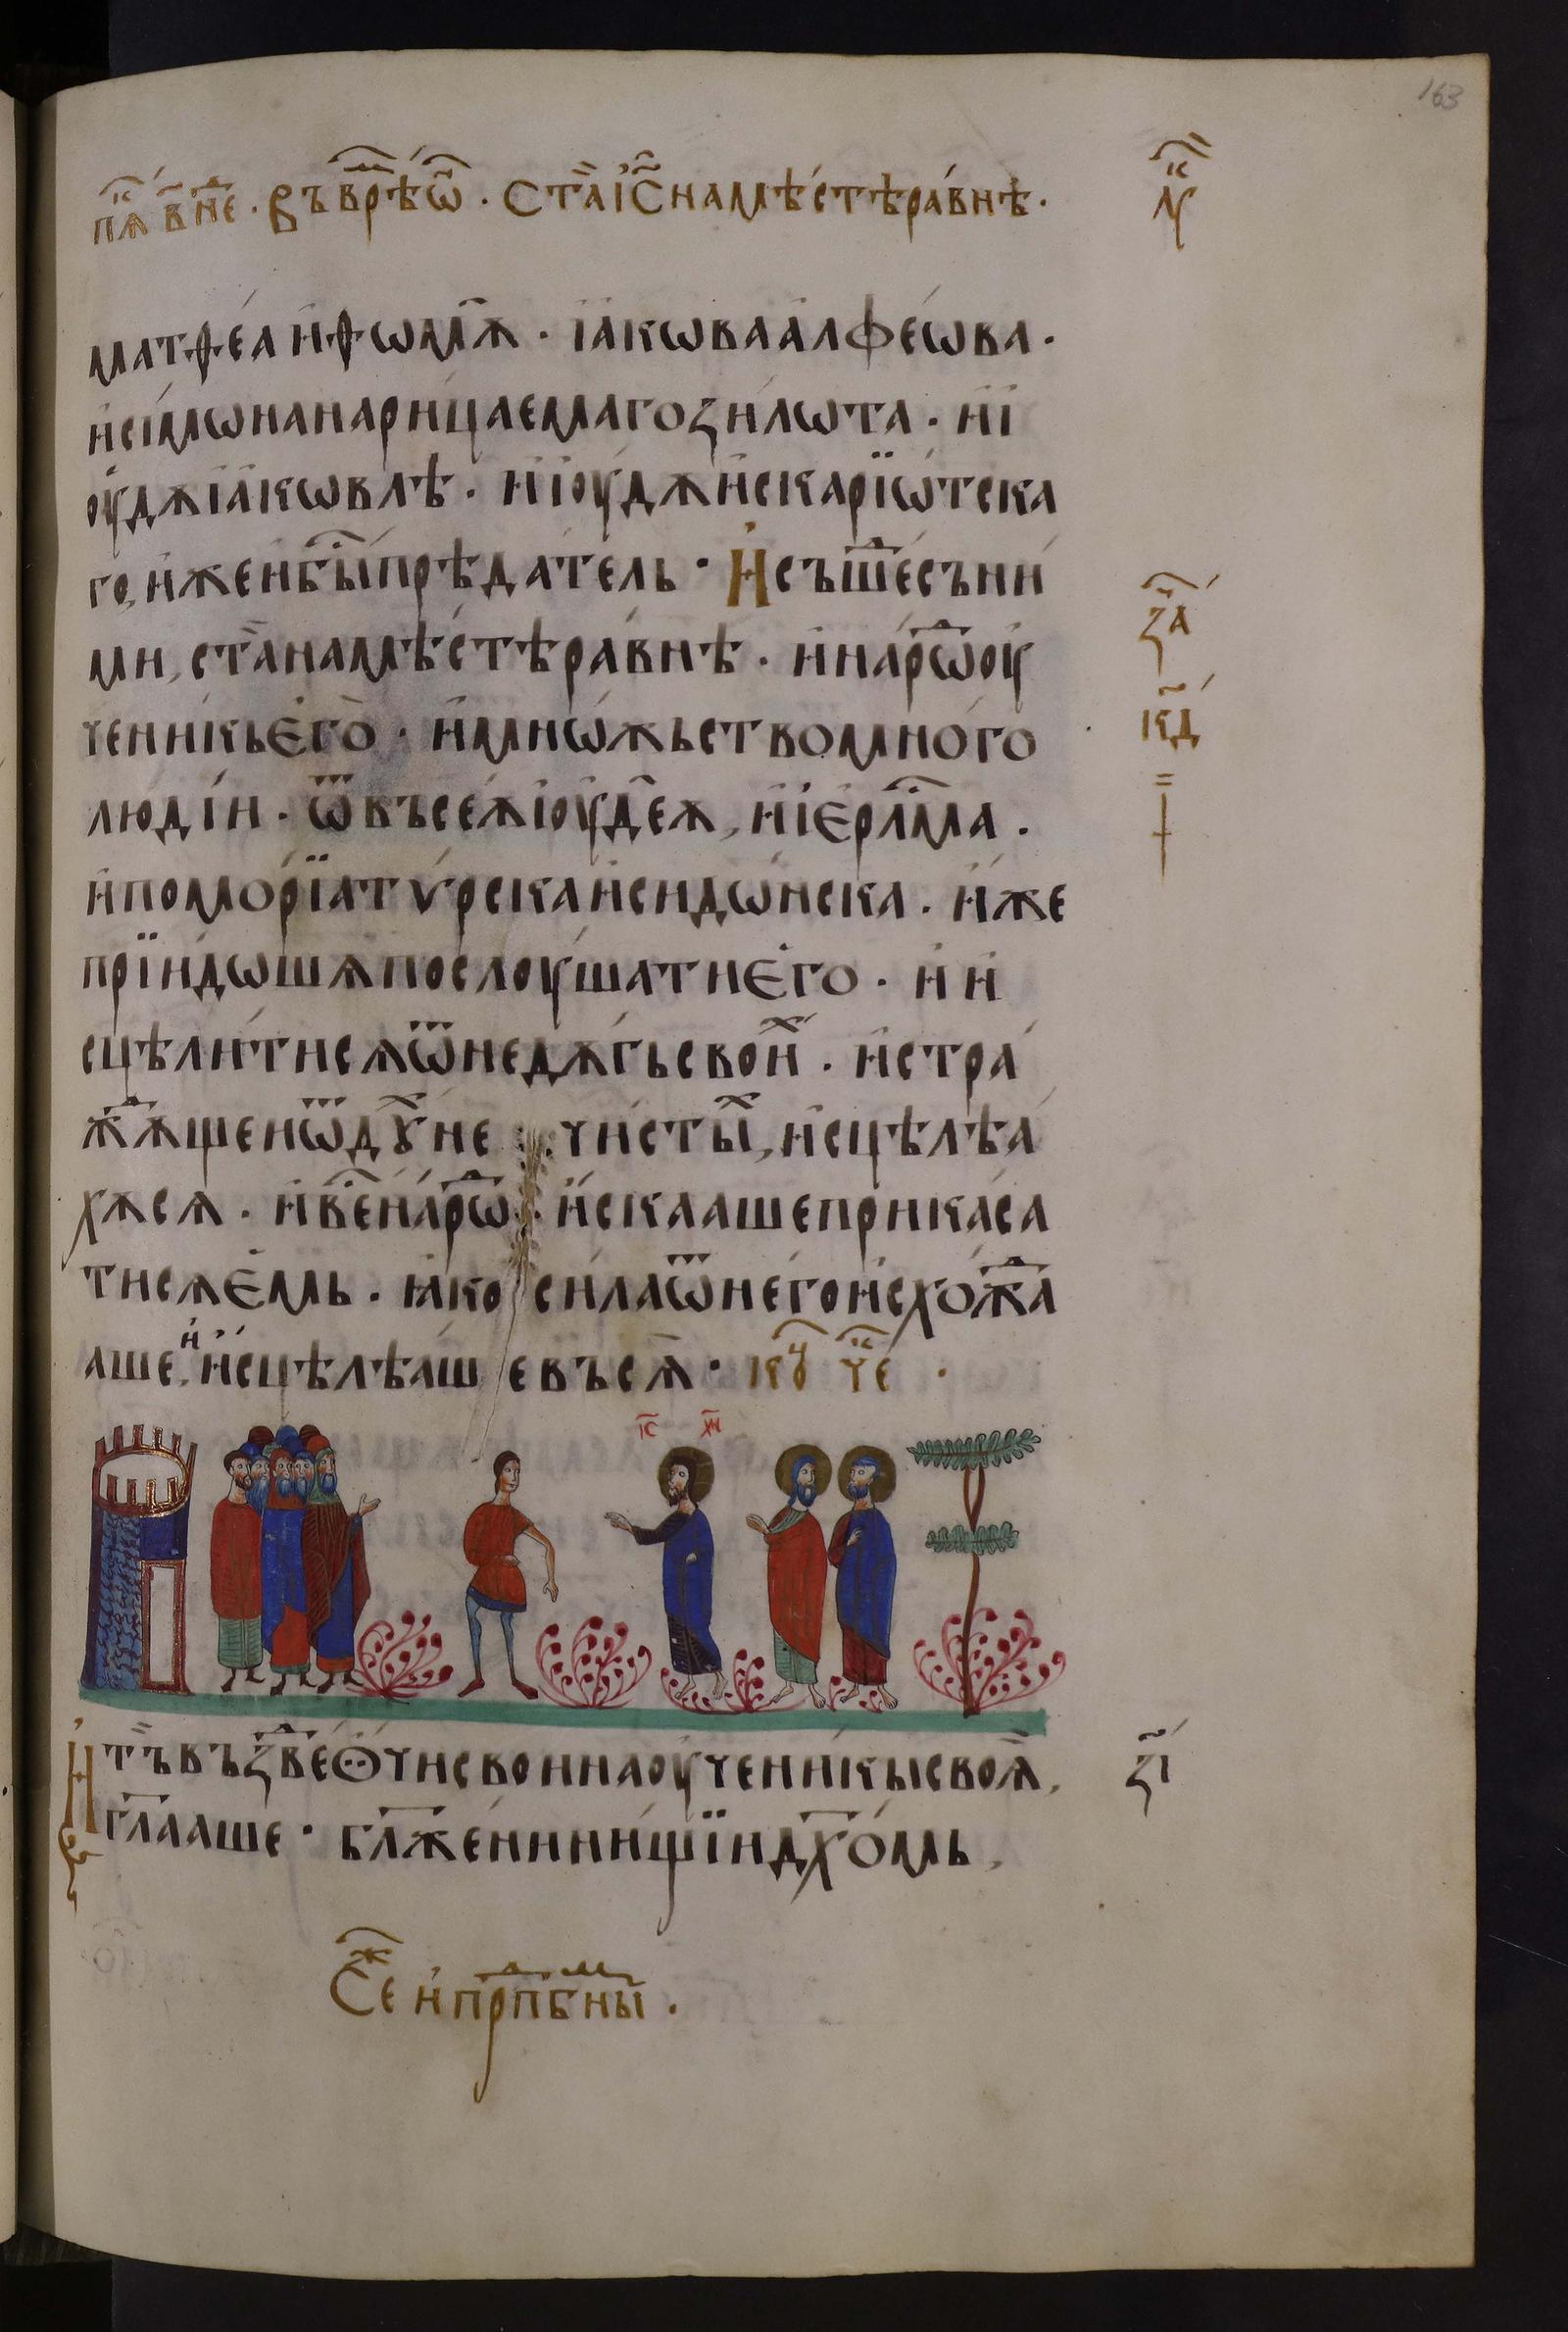 163
пѧ҃ в҃ н҃е · Въ врѣ҃ѡ · Ста̀ і҆с҃ на мѣ́стѣ ра́внѣ ·
матѳе́а и҆ ѳѡмѫ̀ · і҆а́кѡва а҆лфео́ва ·
и҆ сі́мѡна нари́цаемаго зилѡта · и҆ і҆
оу́дѫ і҆а́кѡвлѣ · и҆ і҆оу́дѫ и҆скарїѡ́тска
го, и҆же и бы̑ прѣда́тель · И҆ съше́ съ ни́
ми, ста̀ на мѣ́стѣ ра́внѣ · и҆ наро̑ оу
чени́кь є҆го̀ · и҆ мнѡ́жьство мно́го
людїи · ѿ въсеѫ̀ і҆оуде́ѫ, и҆ і҆єрⷭ҇лма ·
и҆ помо́рїа тѵ́рска и҆ сидѡ́нска · и҆́же
прїидѡшѫ послоу́шати є҆го · и҆ и҆
сцѣли́тисѧ ѿ недѫ́гь свои҆х · и҆ стра́
жѫщеи ѿ дꙋ҃ не чи́сты̑х, и҆сцѣлѣа́
хѫсѧ · и҆ ве́ наро̑ и҆скааше прика́са
тисѧ є҆мь · ꙗ҆ко си́ла ѿ него̀ и҆схо́жда
аше, и҆ и҆сцѣлѣа́ше въсѧ̀ · кⷪ҇ че ·
і҆с҃ хс҃
И҆ тъ̀ възве́ ѻ҆чи свои на оу҆ченикы своѫ̀,
гл҃ааше · бл҃же́ни ни́щїи дх҃о́мь,
Сⷤ҇е и҆ прⷣ҇пб҃ны̑м ·
за҃
кд҃
з҃і